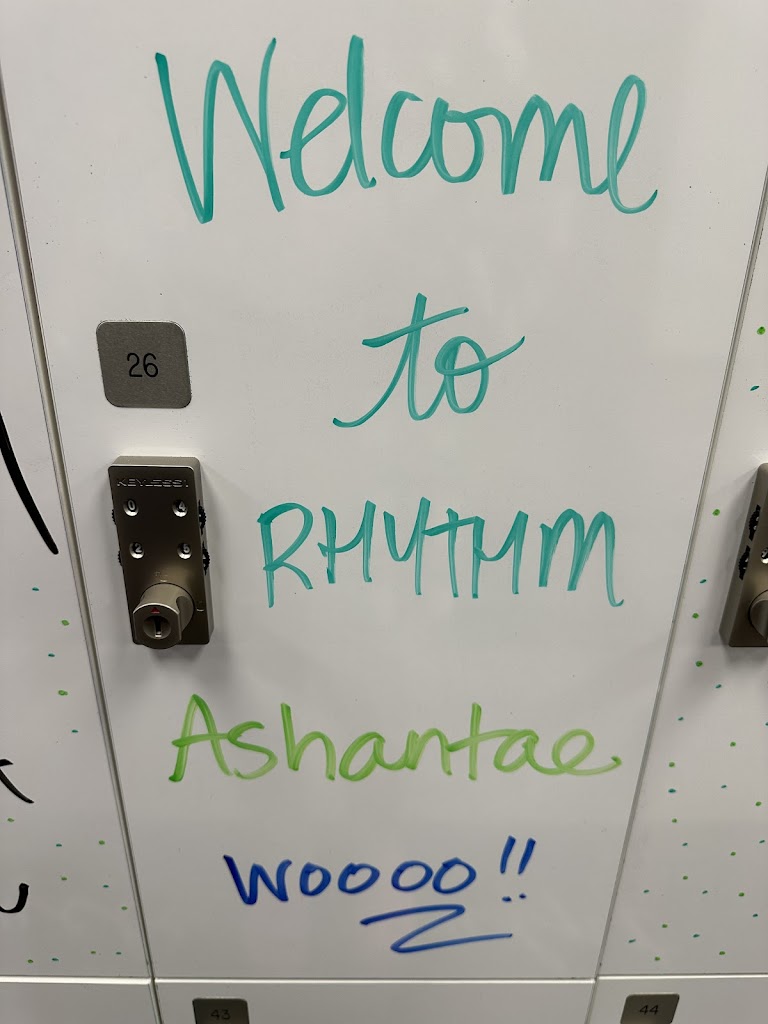 Welcome
to
26
KEYLESS1
RHYTHM
Ashantae
woooo!!
43
44